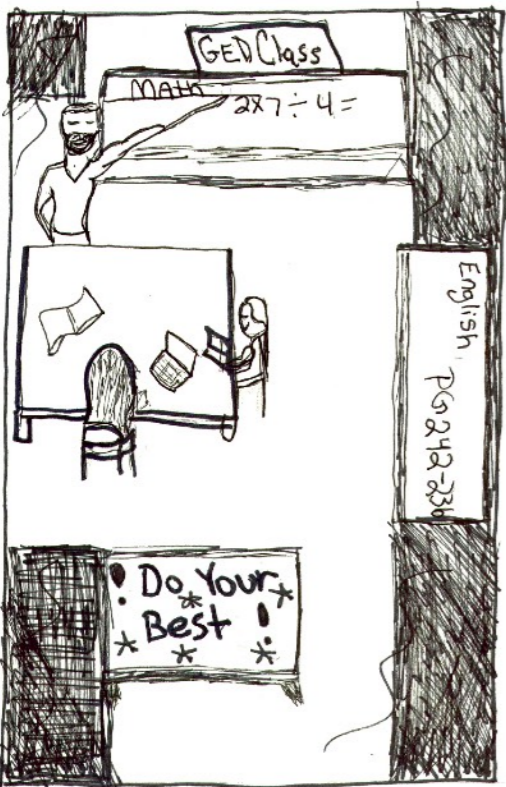 GED Class
MAth
2x7÷4=
English PG 242-236
! Do Your
Best !